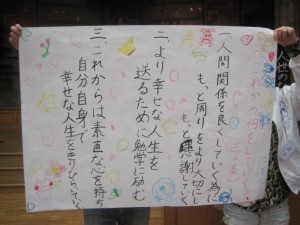 一、人間関係を良くしていく為に
もっと周りをより大切にし
もっと感謝していく
二、より幸せな人生を
送るために勉学に励む
三、これからは素直な心を持ち
自分自身で
幸せな人生をきりひらいていく